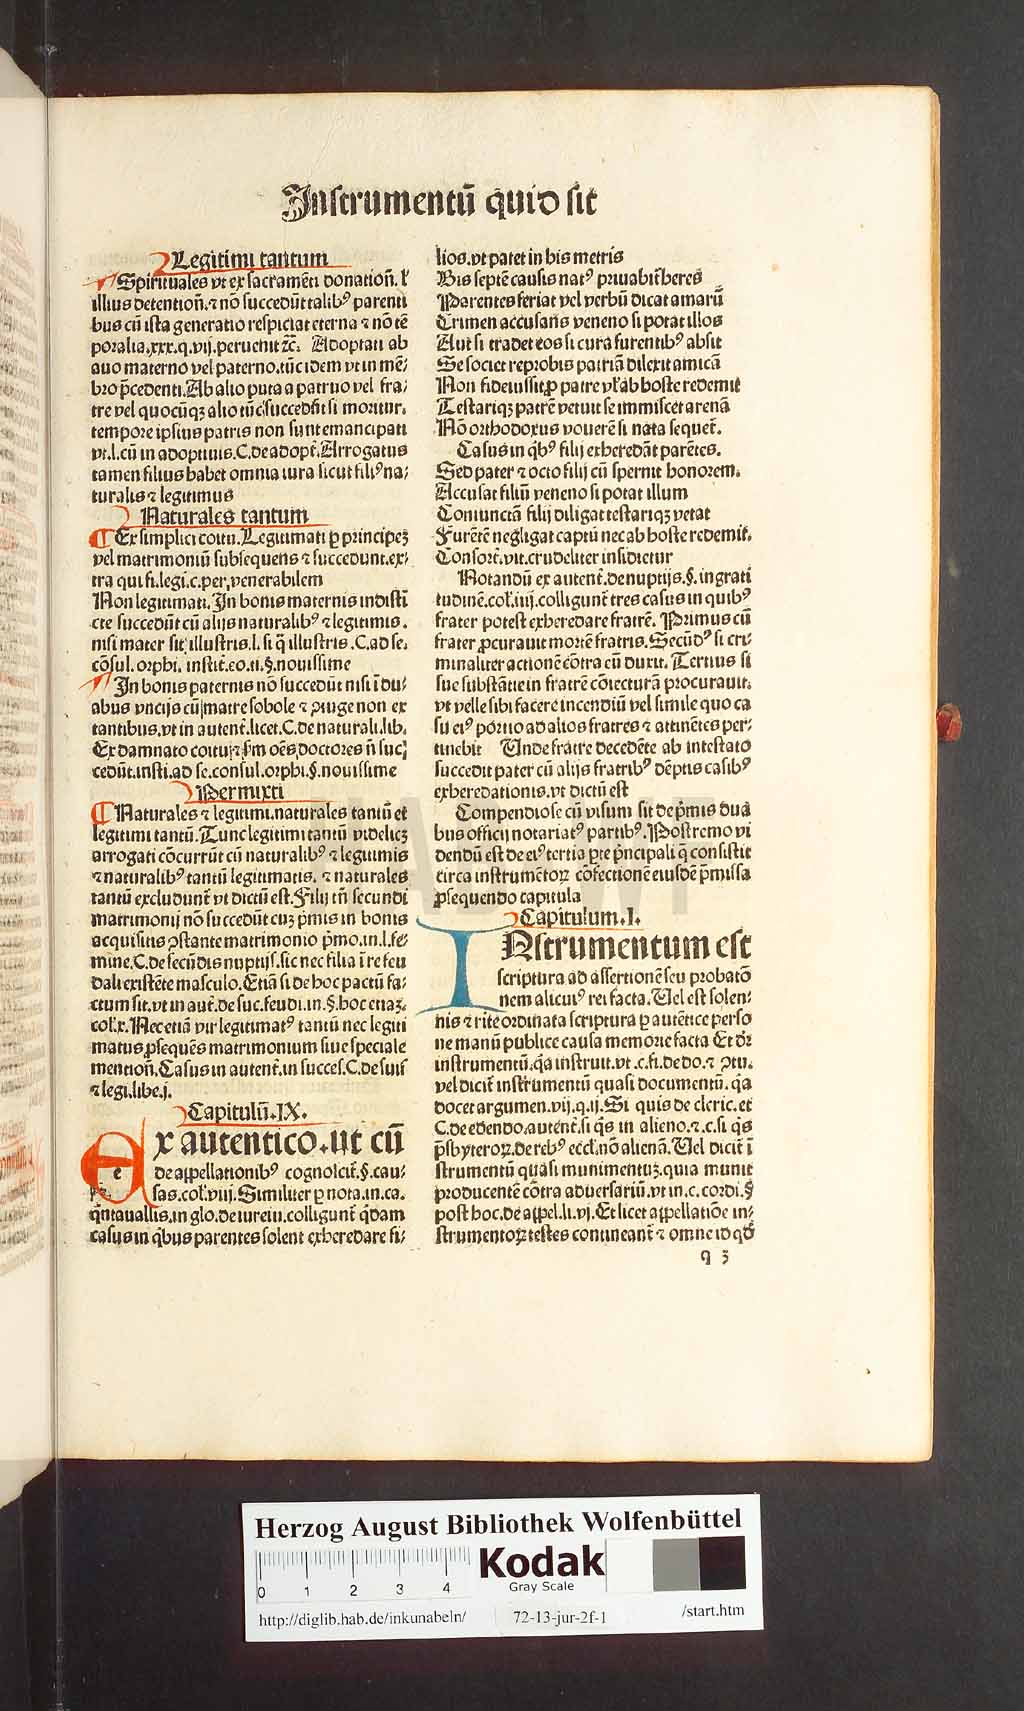 Instrumentū quid sit
Legitimi tantum
Spirituales vt ex sacramēti donationē. ł
illius detentionē. ⁊ nō succedūt talibꝰ parenti
bus cū ista generatio respiciat eterna ⁊ nō tē
poralia.xxx.q.vij.peruenit ⁊c. Adoptati ab
auo materno vel paterno.tūc idem vt in mē/
bro p̄cedenti. Ab alio puta a patruo vel fra/
tre vel quocūqꝫ alio tūc succedūt si moritur.
tempore ipsius patris non sunt emancipati
vt.l.cū in adoptiuis.C.de adopt̄. Arrogatus
tamen filius habet omnia iura sicut filiꝰ na/
turalis ⁊ legitimus
Naturales tantum
Ex simplici coitu. Legitimati ꝑ principeꝫ
vel matrimoniū subsequens ⁊ succedunt.ex/
tra qui fi.legi.c.per venerabilem
Non legitimati. In bonis maternis indisti
cte succedūt cū alijs naturalibꝰ ⁊ legitimis.
nisi mater sit illustris.l.si q̄ illustris.C.ad se.
cōsul. orphi. instit̄.eo.ti.§.nouissime
In bonis paternis nō succedūt nisi ī du/
abus vncijs cū matre sobole ⁊ ꝯiuge non ex
tantibus.vt in autent̄.licet.C.de naturali.lib.
Ex damnato coitu ⁊ ẜm oēs doctores n̄ suc/
cedūt.insti.ad se.consul.orphi.§.nouissime
Permixti
Naturales ⁊ legitimi.naturales tantū et
legitimi tantū. Tunc legitimi tantū videlicꝫ
arrogati cōcurrūt cū naturalibꝰ ⁊ legitimis
⁊ naturalibꝰ tantū legitimatis. ⁊ naturales
tantū excludunt̄ vt dictū est. Filij tn̄ secundi
matrimonij nō succedūt cuꝫ p̄mis in bonis
acquisitis ꝯstante matrimonio p̄mo.in.l.fe/
mine.C.de secūdis nuptijs.sic nec filia ī re feu
dali existēte masculo. Etiā si de hoc pactū fa/
ctum sit.vt in aut̄.de suc.feudi.in.§.hoc etiaꝫ.
col̄.x. Nec etiā vir legitimatꝰ tantū nec legiti
matus ꝓsequēs matrimonium siue speciale
mentionē. Casus in autent̄.in succes.C.de suis
⁊ legi.libe.j.
Capitulū.IX.
Ex autentico.ut cū
de appellationibꝰ cognoscit̄.§.cau/
sas.col̄.viij. Similiter ꝑ nota.in.ca.
q̄ntauallis.in glo.de iureiu.colligunt̄ q̄dam
casus in q̄bus parentes solent exheredare fi/
lios.vt patet in his metris
Bis septē causis natꝰ priuabit̄ heres
Parentes feriat vel verbū dicat amarū
Crimen accusans veneno si potat illos
Aut si tradet eos si cura furentibꝰ absit
Se societ reprobis patriā dilexit amicā
Non fideiussit ꝓ patre vl̄ ab hoste redemit
Testariqꝫ patrē vetuit se immiscet arenā
Nō orthodoxus vouerē si nata sequet̄.
Casus in q̄bꝰ filij exheredāt parētes.
Sed pater ⁊ octo filij cū spernit honorem.
Accusat filiū veneno si potat illum
Coniunctā filij diligat testariqꝫ vetat
Furētē negligat captū nec ab hoste redemit.
Consort̄.vit.crudeliter insidietur
Notandū ex autent̄.de nuptijs.§.ingrati
tudinē.col̄.iiij.colligunt̄ tres casus in quibꝰ
frater potest exheredare fratrē. Primus cū
frater ꝓcurauit mortē fratris. Secūdꝰ si cri/
minaliter actionē cōtra eū duxit. Tertius si
sue substātie in fratrē cōiecturā procurauit.
vt velle sibi facere incendiū vel simile quo ca
su eiꝰ portio ad alios fratres ⁊ attinētes per/
tinebit Unde fratre decedēte ab intestato
succedit pater cū alijs fratribꝰ dēptis casibꝰ
exheredationis.vt dictū est
Compendiose cū visum sit de p̄mis dua
bus officij notariatꝰ partibꝰ. Postremo vi
dendū est de eiꝰ tertia pte p̄ncipali q̄ consistit
circa instrumentoꝝ cōfectionē eiusdē p̄missa
ꝓsequendo capitula
Capitulum.I.
INstrumentum est
scriptura ad assertionē seu probatō
nem alicuiꝰ rei facta. Uel est solen/
nis ⁊ rite ordinata scriptura ꝑ autētice perso
ne manū publice causa memorie facta Et dr̄
instrumentū.q̄a instruit.vt.c.fi.de do.⁊ ꝯtu.
vel dicit̄ instrumentū quasi documentū.q̄a
docet argumen.vij.q.ij. Si quis de cleric.et
C.de edendo.autent̄.si q̄s in alieno.⁊.c.si q̄s
p̄sbyteroꝝ.de rebꝰ eccl̄.nō alienā. Uel dicit̄ ī
strumentū quasi munimentuꝫ.quia munit
producentē cōtra aduersariū.vt in.c.cordi.§
post hoc.de appel.li.vj. Et licet appellatiōe in/
strumentoꝝ testes contineant̄ ⁊ omne id qd̄
q 3
Herzog August Bibliothek Wolfenbüttel
0 1 2 3 4
Kodak
Gray Scale
http://diglib.hab.de/inkunabeln/
72-13-jur-2f-1
/start.htm
HAB WF